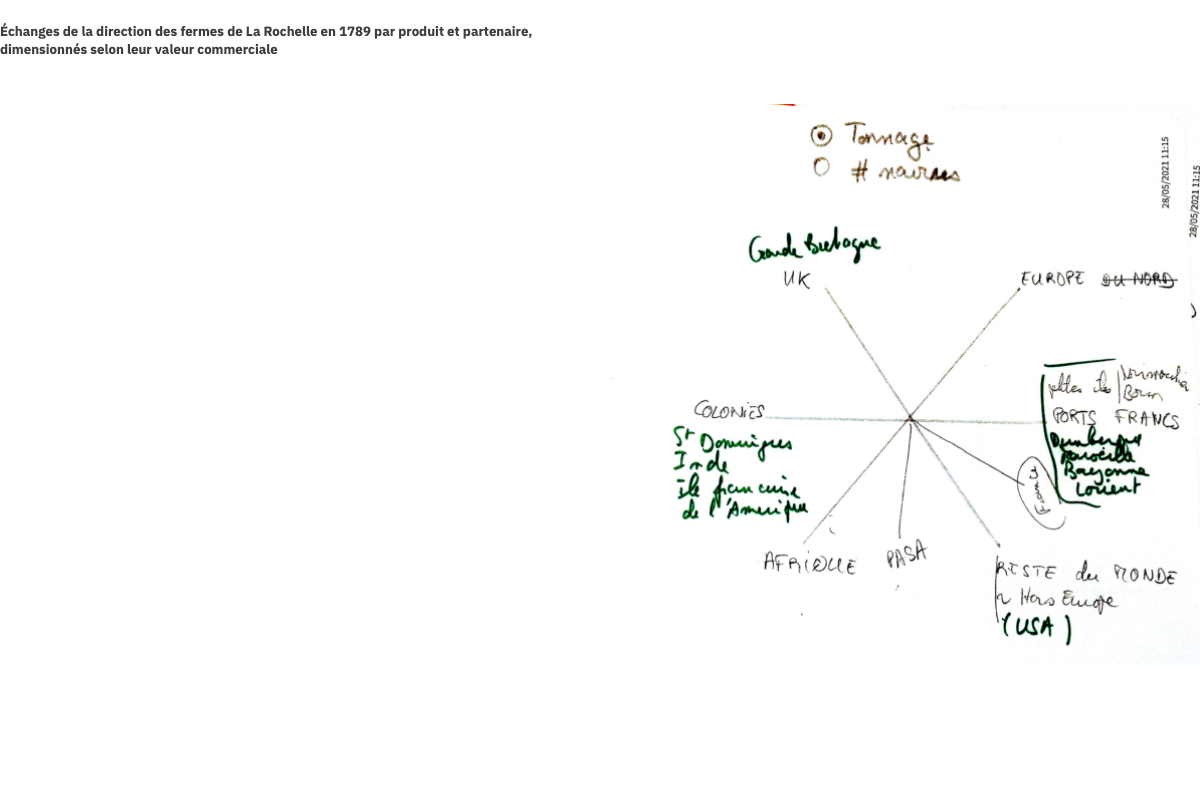 Échanges de la direction des fermes de La Rochelle en 1789 par produit et partenaire,
dimensionnés selon leur valeur commerciale
Tonnage
# navires
28/05/2021 11:15
28/05/2021 11:15
Grande Bretagne
UK
EUROPE DU NORD
petites îles
PORTS FRANCS
Dunkerque
Marseille
Bayonne
Lorient
COLONIES
St Domingues
Inde
île française
de l'Amérique
France
AFRIQUE
PASA
RESTE du MONDE
~ Hors Europe
(USA)